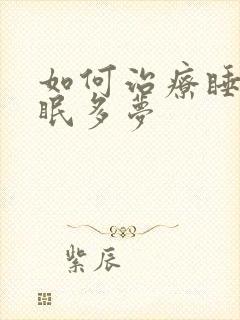 如何治療睡
眠多夢
紫辰